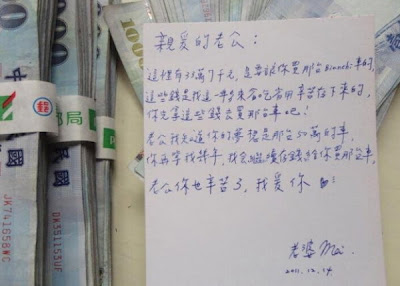 親愛的老公：
這裡有37萬7千元，是要讓你買那台Bianchi車的，
這些錢是我這一年多來省吃省用辛苦存下來的，
你先拿這些錢去買那台車吧！
老公我知道你的夢想是那台50萬的車，
你再等我幾年，我會繼續存錢給你買那台車，
老公你也辛苦了，我愛你
老婆 Mei.
2011.12.14
中
民國
國
郵
郵局
JK741658WC
DK351153UF
1000